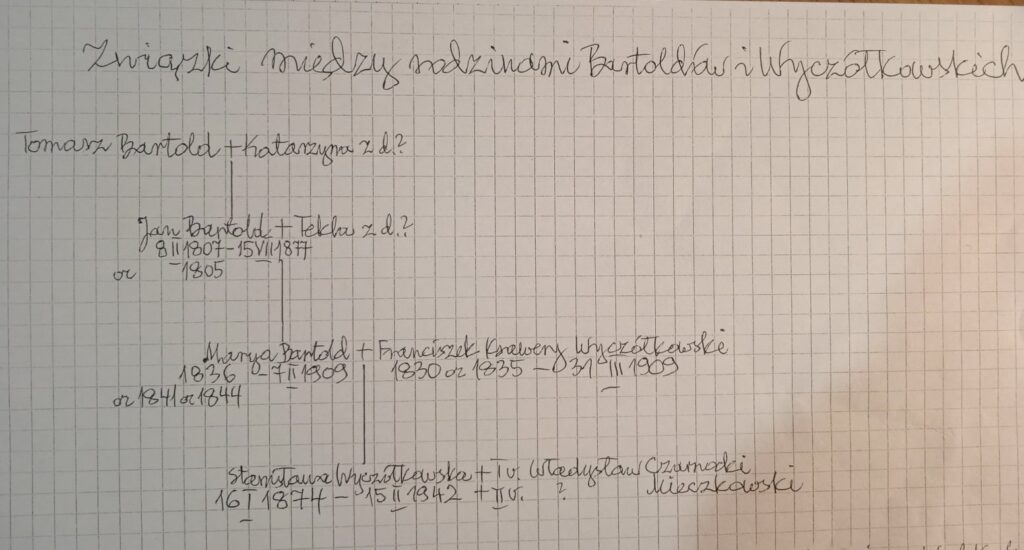 Związki między rodzinami Bartoldów i Wyczółkowskich
Tomasz Bartold + Katarzyna z d.?
Jan Bartold + Tekla z d.?
8 II 1807 - 15 VII 1877
or 1805
Marya Bartold + Franciszek Ksawery Wyczółkowski
1836 - 7 II 1909 1830 or 1835 - 31 III 1909
or 1841 or 1844
Stanisława Wyczółkowska + I v. Władysław Czarnocki
16 I 1874 - 15 II 1942 + II v. ? Mieczkowski